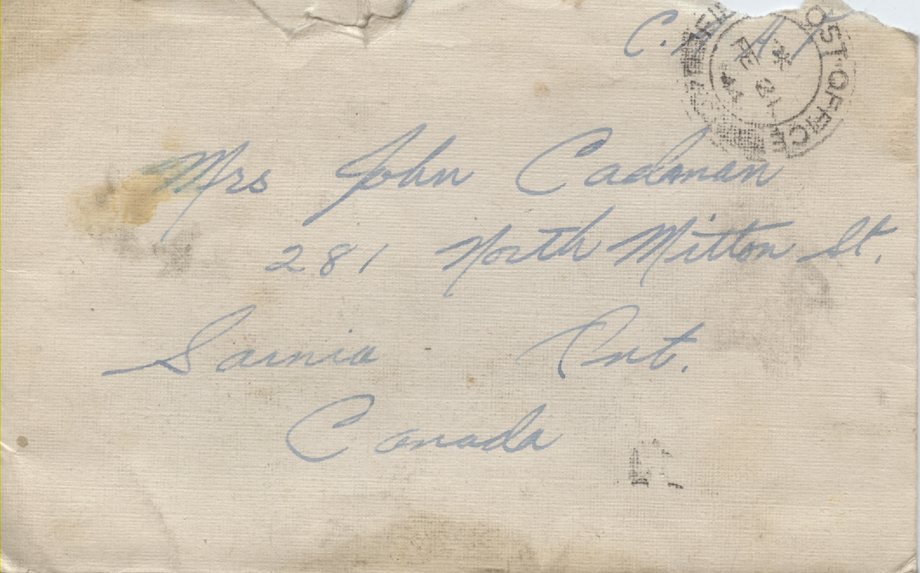 C. A. F
FIELD POST OFFICE
FE 21
44
Mrs John Cadman
281 North Mitton St.
Sarnia Ont.
Canada